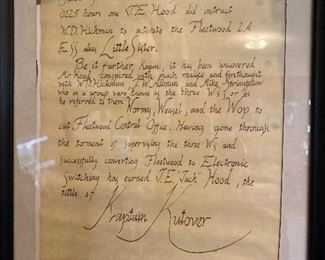 0225 hours one J.E. Hood did instruct
W.D. Hickman to activate the Fleetwood 2A
ESS alias Little Sister.
Be it further known, it has been uncovered
Mr Hood conspired with much malice and forethought
with W.D. Hickman, J.W. Altman, and Mike Springfellow
who as a group are known as the three W's or as
he referred to them Wormy, Weasel, and the Wop to
cut Fleetwood Central Office. Having gone through
the torment of supervising the three Ws and
successfully converting Fleetwood to Electronic
Switching has earned J.E. "Jack" Hood, the
tittle of
Kaptain Kutover